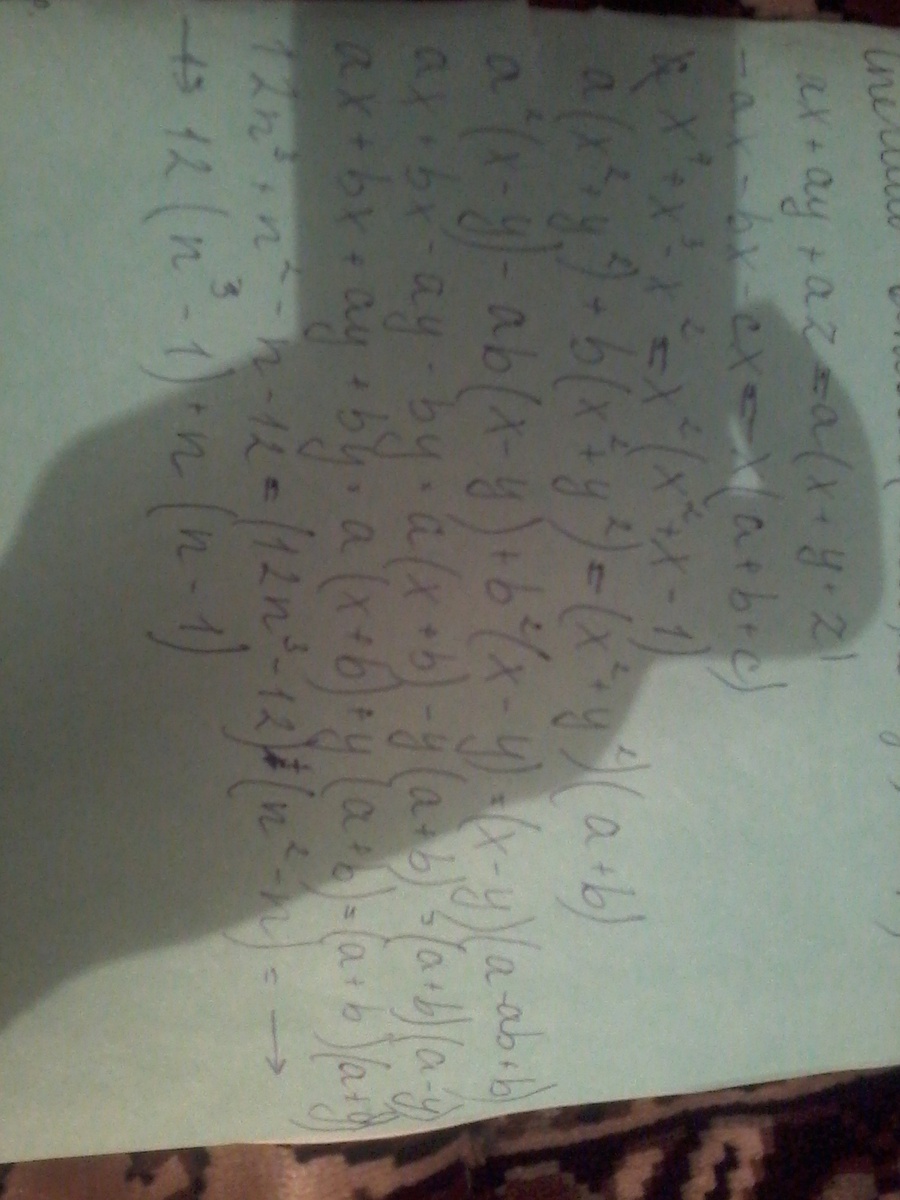 ax + ay + az = a(x + y + z)
- ax - bx - cx = - x(a + b + c)
x⁴ + x³ - x² = x²(x² + x - 1)
a(x² + y²) + b(x² + y²) = (x² + y²)(a + b)
a²(x - y) - ab(x - y) + b²(x - y) = (x - y)(a - ab + b)
ax + bx - ay - by = a(x + b) - y(a + b) = (a + b)(a - y)
ax + bx + ay + by = a(x + b) + y(a + b) = (a + b)(a + y)
12n³ + n² - n - 12 = (12n³ - 12) + (n² - n) = →
→ 12(n³ - 1) + n(n - 1)